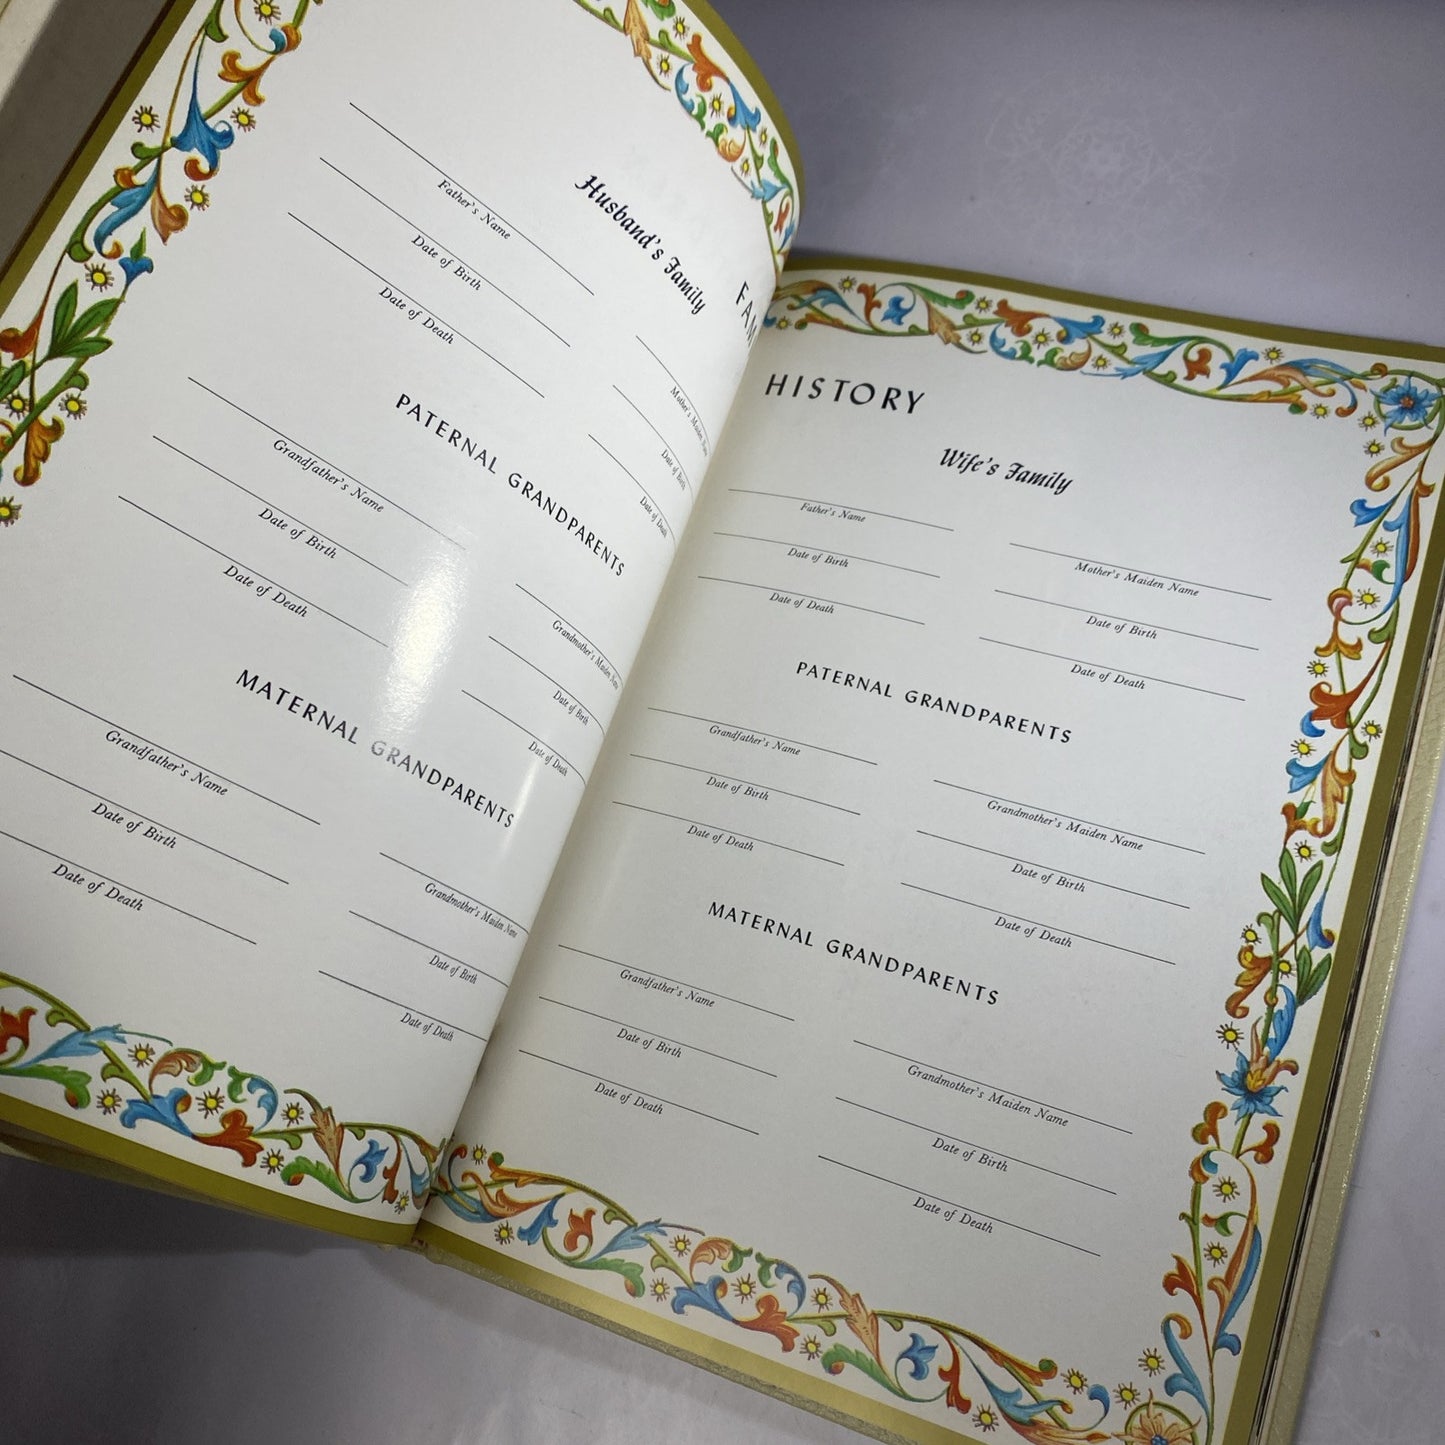 FAM
Husband's Family
Father's Name
Date of Birth
Date of Death
Mother's Maiden
Date of Birth
Date of Death
PATERNAL GRANDPARENTS
Grandfather's Name
Date of Birth
Date of Death
Grandmother's Maiden Name
Date of Birth
Date of Death
MATERNAL GRANDPARENTS
Grandfather's Name
Date of Birth
Date of Death
Grandmother's Maiden Name
Date of Birth
Date of Death
HISTORY
Wife's Family
Father's Name
Date of Birth
Date of Death
Mother's Maiden Name
Date of Birth
Date of Death
PATERNAL GRANDPARENTS
Grandfather's Name
Date of Birth
Date of Death
Grandmother's Maiden Name
Date of Birth
Date of Death
MATERNAL GRANDPARENTS
Grandfather's Name
Date of Birth
Date of Death
Grandmother's Maiden Name
Date of Birth
Date of Death